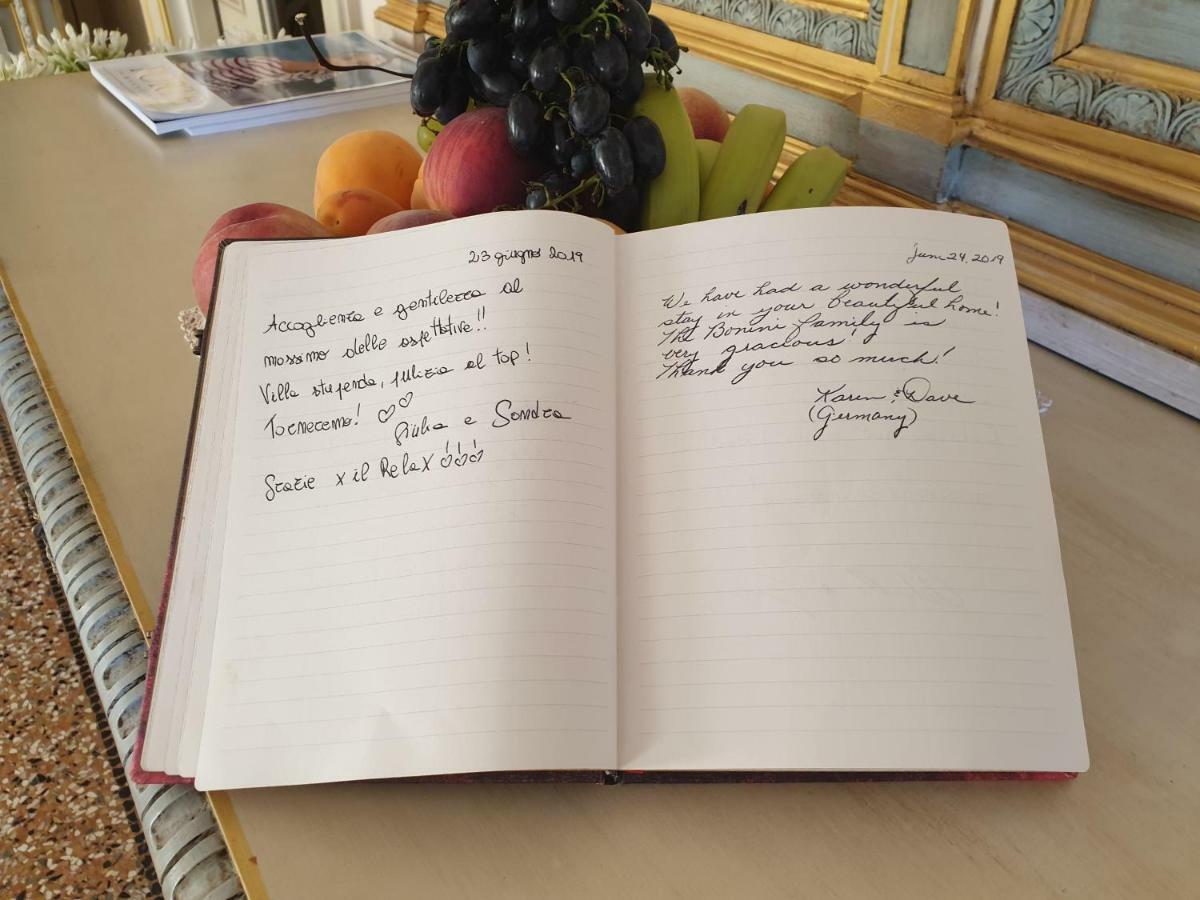 23 giugno 2019
Accoglienza e gentilezza al
massimo delle aspettative!!
Villa stupenda, pulizia al top!
Torneremo! ♡♡
Giulia e Sandra
Grazie x il Relax
June 24, 2019
We have had a wonderful
stay in your beautiful home!
The Bonini family is
very gracious!
Thank you so much!
Karen & Dave
(Germany)